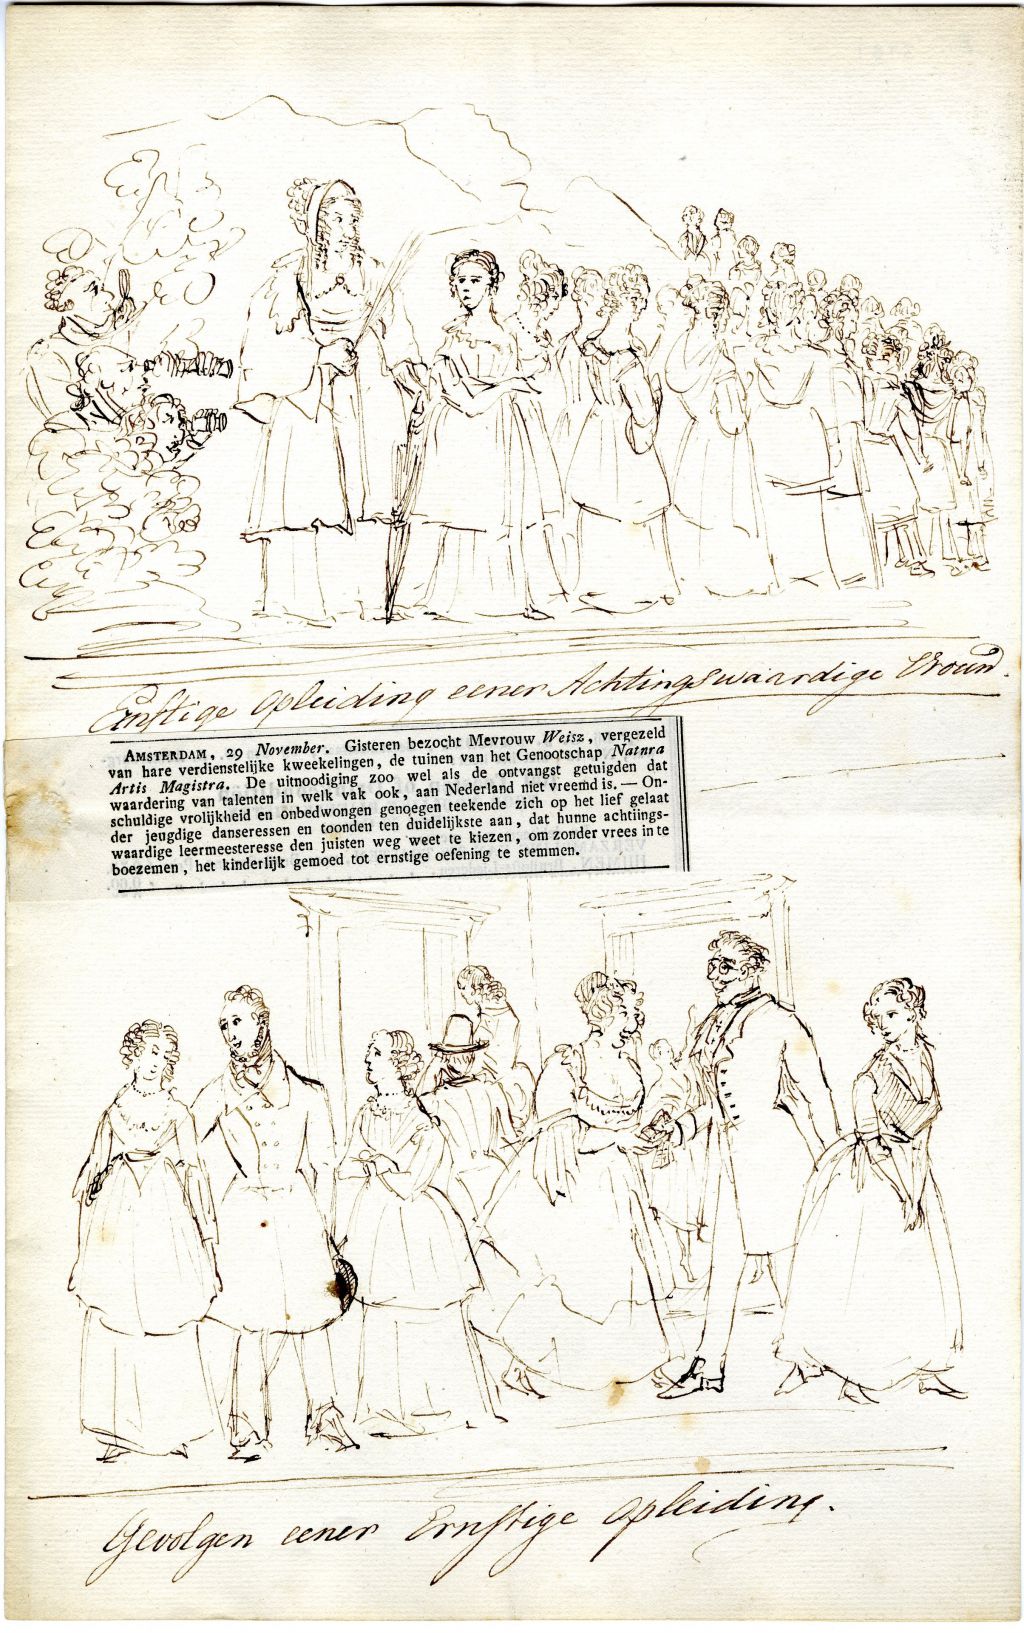 Ernstige opleiding eener Achtingswaardige Vrouw.
AMSTERDAM, 29 November. Gisteren bezocht Mevrouw Weisz, vergezeld
van hare verdienstelijke kweekelingen, de tuinen van het Genootschap Natnra
Artis Magistra. De uitnoodiging zoo wel als de ontvangst getuigden dat
waardering van talenten in welk vak ook, aan Nederland niet vreemd is. — On-
schuldige vrolijkheid en onbedwongen genoegen teekende zich op het lief gelaat
der jeugdige danseressen en toonden ten duidelijkste aan, dat hunne achtiings-
waardige leermeesteresse den juisten weg weet te kiezen, om zonder vrees in te
boezemen, het kinderlijk gemoed tot ernstige oefening te stemmen.
Gevolgen eener Ernstige opleiding.